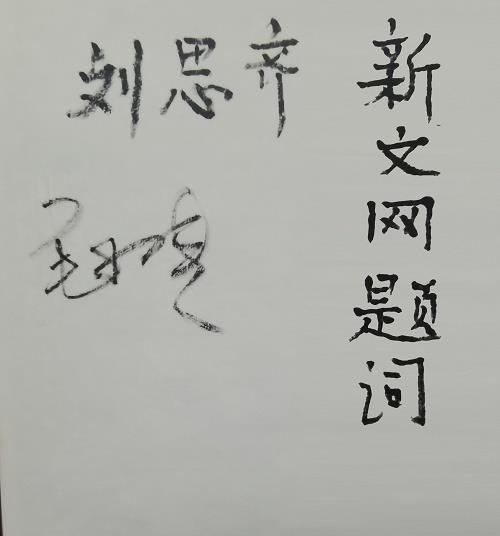 新文网题词
刘思齐